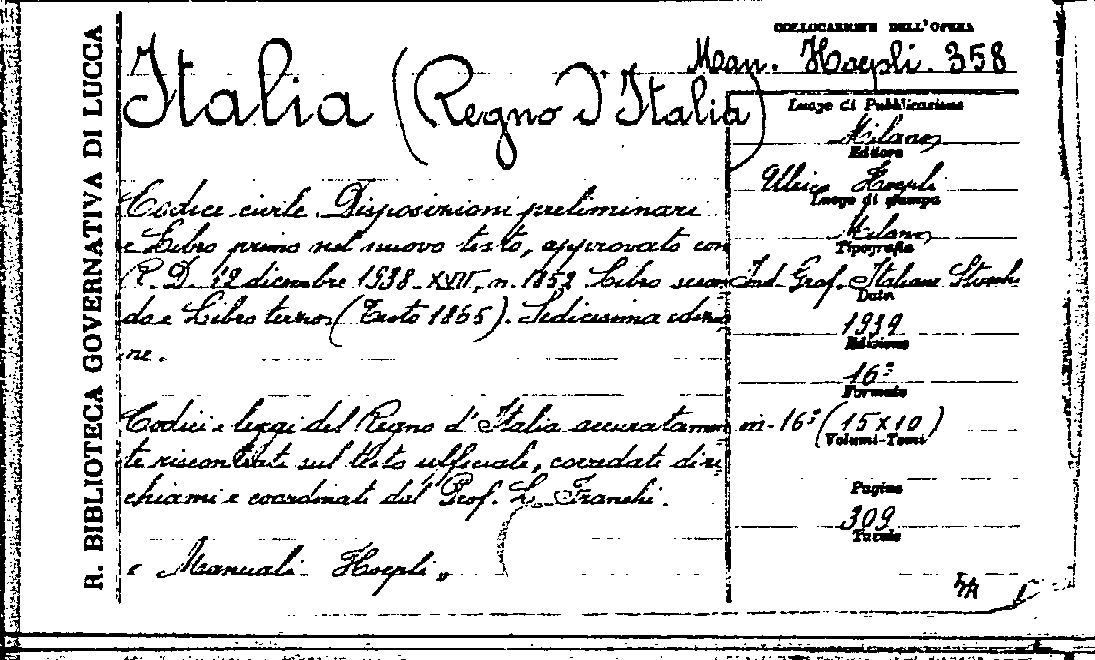 R. BIBLIOTECA GOVERNATIVA DI LUCCA
COLLOCAZIONE DELL'OPERA
Man. Hoepli. 358
Italia (Regno d'Italia)
Codice civile. Disposizioni preliminari
e Libro primo nel nuovo testo, approvato con
R. D. 12 dicembre 1938-XVII, n. 1852 Libro secon
do e Libro terzo (Testo 1865). Sedicesima edizio
ne.
Codici e leggi del Regno d'Italia accuratamen
te riscontrate sul testo ufficiale, corredati di ri
chiami e coordinati dal Prof. L. Franchi.
"Manuali Hoepli"
Luogo di Pubblicazione
Milano
Editore
Ulrico Hoepli
Luogo di stampa
Milano
Tipografia
Ind. Graf. Italiane Stucchi
Data
1939
Edizione
16ª
Formato
in-16° (15 x 10)
Volumi-Tomi
Pagine
309
Tavole